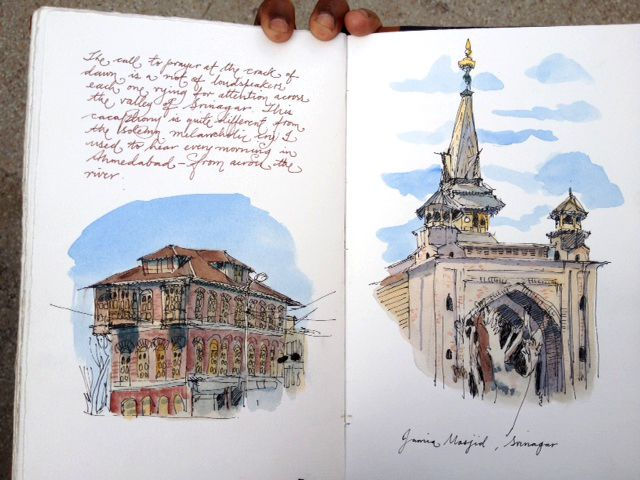 The call to prayer at the crack of
dawn is a riot of loudspeakers
each one vying for attention across
the valley of Srinagar. This
cacaphony is quite different from
the solemn melancholic cry I
used to hear every morning in
Ahmedabad – from across the
river.
Jamia Masjid, Srinagar